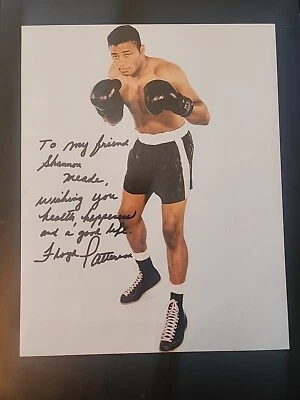 To my friend
Shannon
Meade,
wishing you
health, happiness
and a good life.
Floyd Patterson